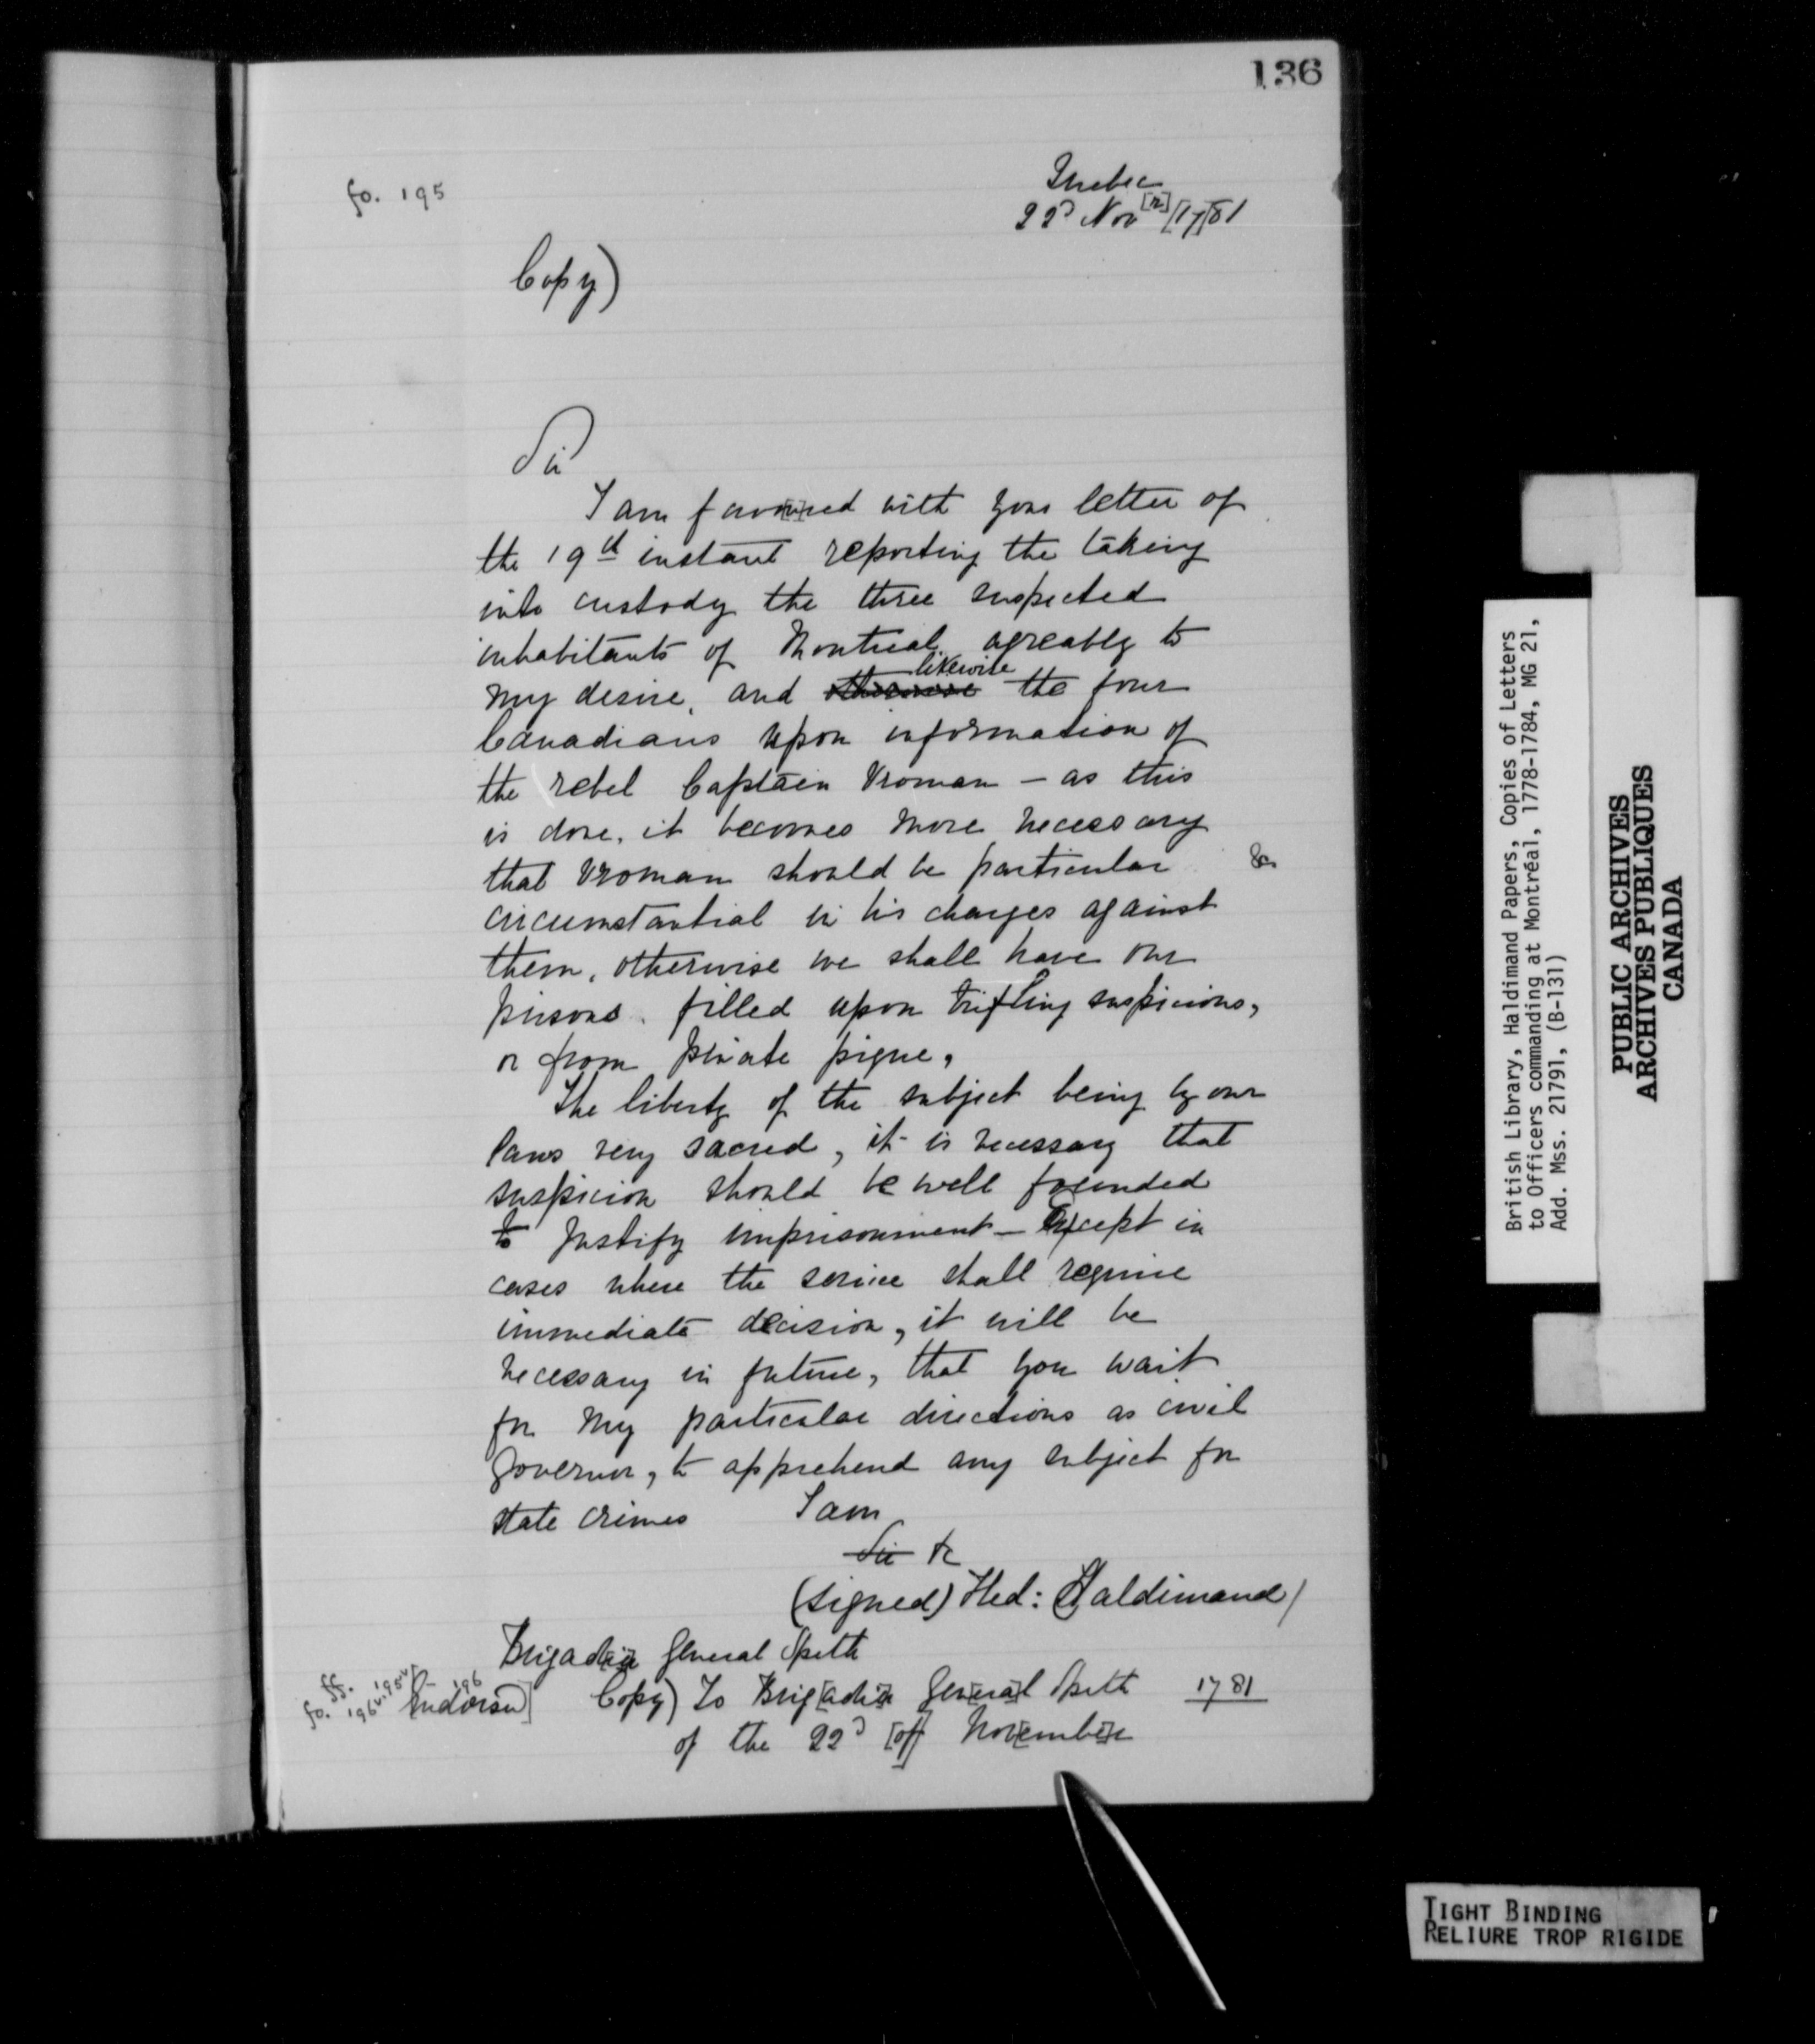 136
fo. 195
Quebec
22d Nov[r] [17]81
Copy)
Sir
I am favo[u]red with your letter of
the 19th instant reporting the taking
into custody the three suspected
inhabitants of Montreal agreably to
likewise
my desire, and otherwise the four
Canadians upon information of
the rebel Captain Vroman – as this
is done, it becomes more necessary
that Vroman should be particular &
circumstantial in his charges against
them, otherwise we shall have our
prisons filled upon trifling suspicions,
or from private pique,
The liberty of the subject being by our
laws very sacred, it is necessary that
suspicion should be well founded
to justify imprisonment – Except in
cases where the service shall require
immediate decision, it will be
necessary in future, that you wait
for my particular directions as civil
Governor, to apprehend any subject for
state crimes I am
Sir &c
(signed) Fred: Haldimand/
Brigad[ie]r General Speth
ff. 195v-196
fo. 196v. Endorsed] Copy) To Brig[adie]r Gen[era]l Speth 1781
of the 22d [of] Nov[embe]r
British Library, Haldimand Papers, Copies of Letters
to Officers commanding at Montréal, 1778-1784, MG 21,
Add. Mss. 21791, (B-131)
PUBLIC ARCHIVES
ARCHIVES PUBLIQUES
CANADA
TIGHT BINDING
RELIURE TROP RIGIDE